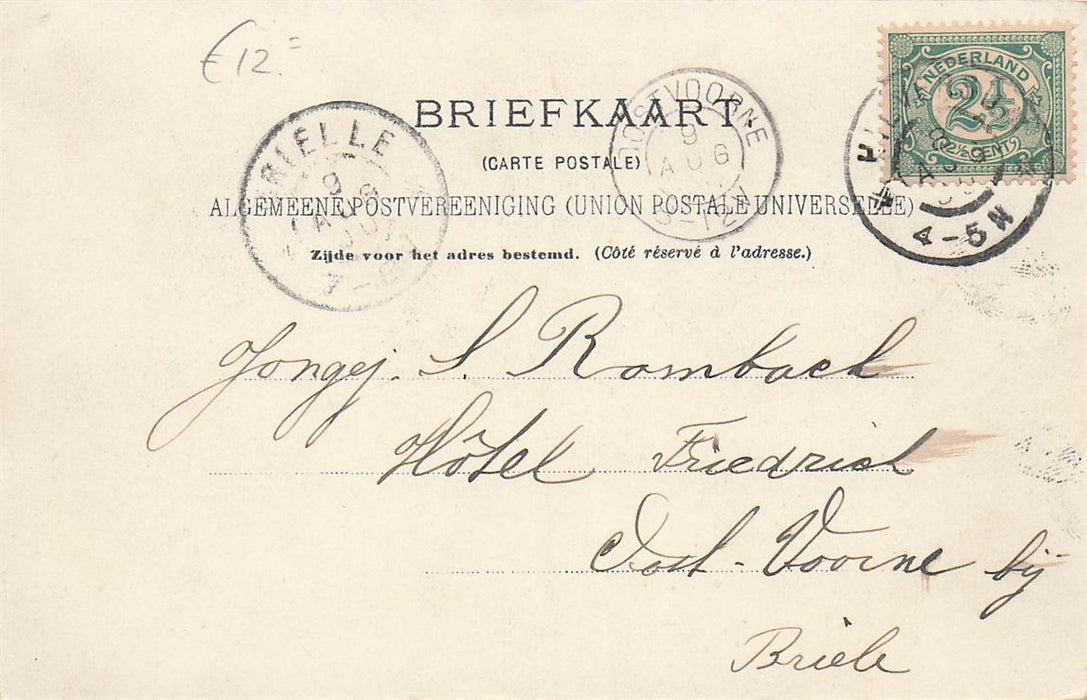 €12.=
NEDERLAND
2½
(2½ CENT)
BRIEFKAART.
(CARTE POSTALE)
ALGEMEENE POSTVEREENIGING (UNION POSTALE UNIVERSELLE)
Zijde voor het adres bestemd. (Côté réservé à l'adresse.)
BRIELLE
9 AUG
OOSTVOORNE
9 AUG
9-12
4-5N
Jongej. S. Rombach
Hôtel Friedrich
Oost-Voorne bij
Briele